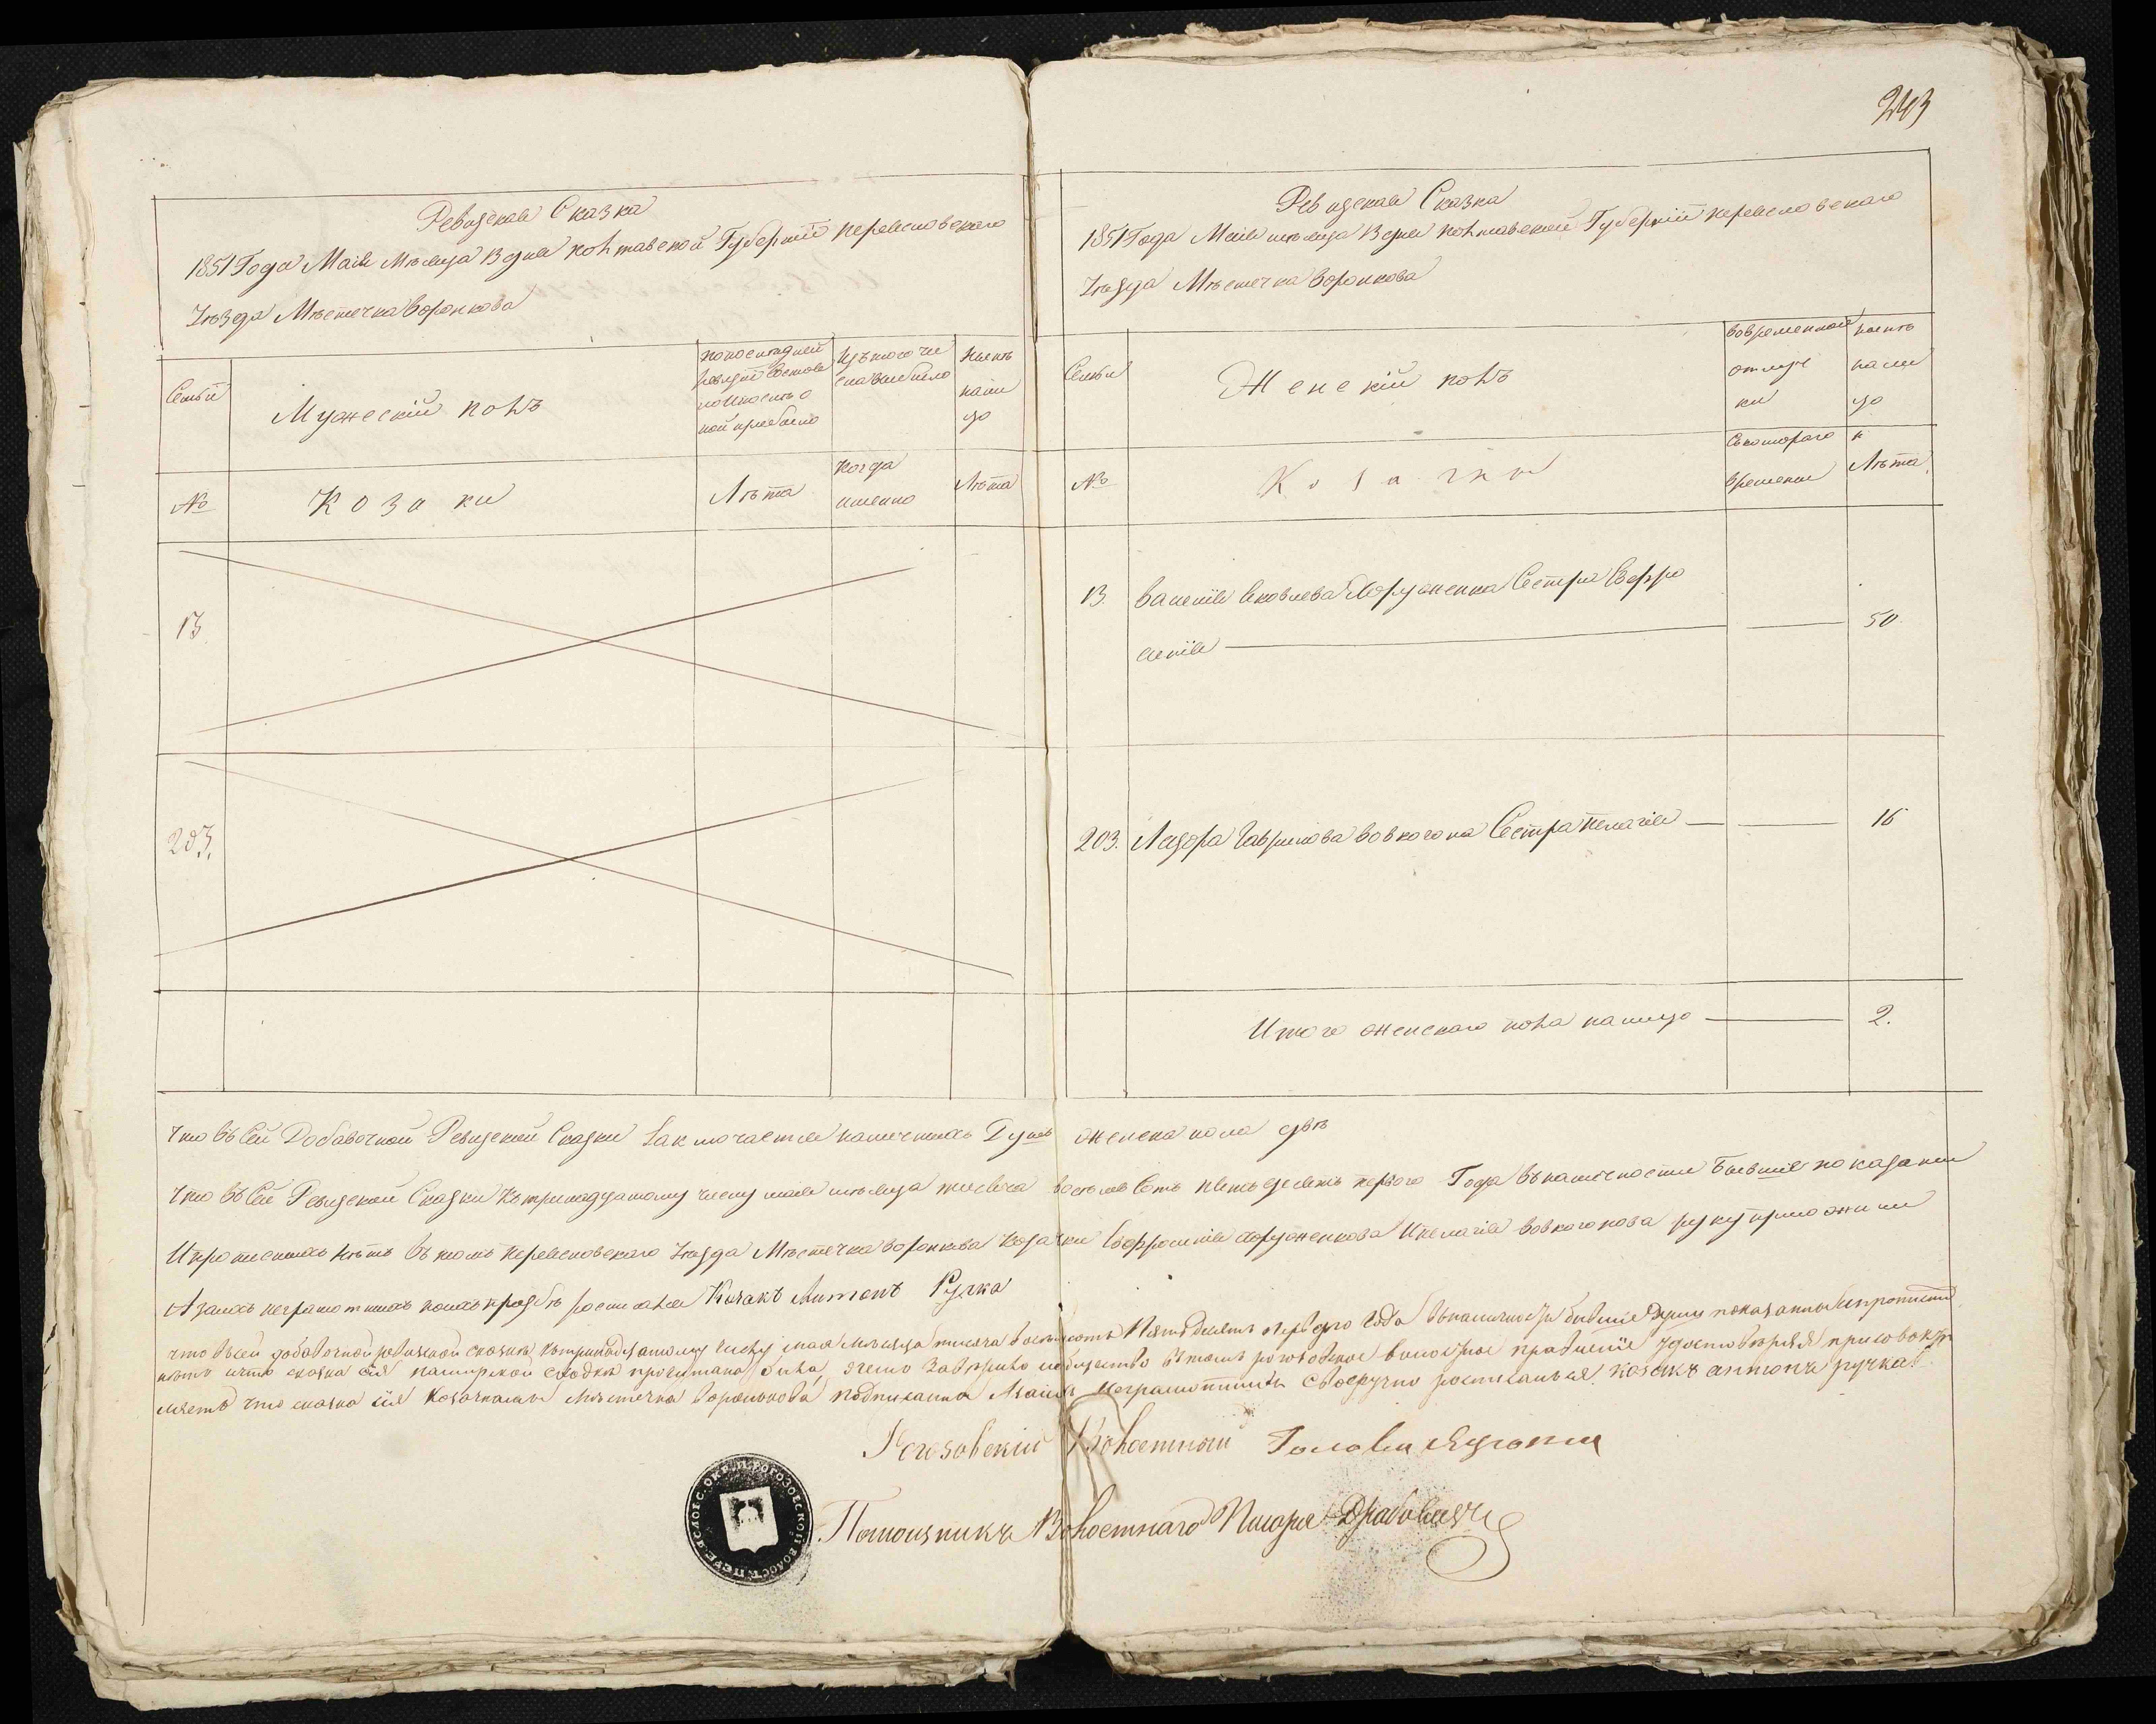 243
Ревизская Сказка
1851 Года Маія Мѣсяца 13 дня полтавской Губерніи переяславскаго
Уѣзда Мѣстечка Воронкова
Семьи
Мужескій полъ
по последней
ревизіи состояло
и после
оной прибыло
Изъ того чи
сла выбыло
Ныне
нали
цо
№
Козаки
Лѣта
когда
именно
Лѣта
13.
203.
Ревизская Сказка
1851 Года Маія мѣсяца 13 дня полтавской Губерніи переяславскаго
Уѣзда Мѣстечка Воронкова
Семьи
Женскій полъ
во временной
отлуч
ки
ныне
нали
цо
№
Козачки
съ котораго
времени
Лѣта
13. Васенія Яковлева Сестра Евфро
синія 50.
203. Лазора Гаврилова Вовкогона Сестра Пелагія 16
Итого женскаго пола налицо 2.
Что въ Сей Добавочной Ревизской Сказки Заключается наличныхъ Душъ женска пола двѣ
Что въ Сей Ревизской Сказки къ тринадцатому числу маія мѣсяца тысяча восемь Сотъ пятьдесятъ перваго Года въ наличности бывшіе показаны
И прописныхъ нѣтъ въ томъ переяславскаго Уѣзда Мѣстечка Воронкова козачки Евфросинія и Пелагія Вовкогонова руку приложили
А заихъ неграмотныхъ поихъ прозбѣ росписался Козакъ Антонъ Ручка
что въсей добавочной ревизской сказки, къ тринадцатому числу мая мѣсяца тысяча восемьсотъ Пятьдесятъ перваго Года въналичности бывшіе Души показаны и прописныхъ
нѣтъ и что сказка сія намирской сходки прочитана была, въ томъ роговское волосное правленіе удостовѣряя присовокуп
ляетъ что сказка сія Козачками мѣстечка воронькова подписанна Азаихъ неграмотныхъ своеручно росписалься козакъ антонъ ручка.
Рогозовскій Волостной Голова
Помощникъ Волостнаго Писаря
ПЕРЕЯСЛОВС. ОКР. РОГОЗОВСКОЙ ВОЛОСТИ